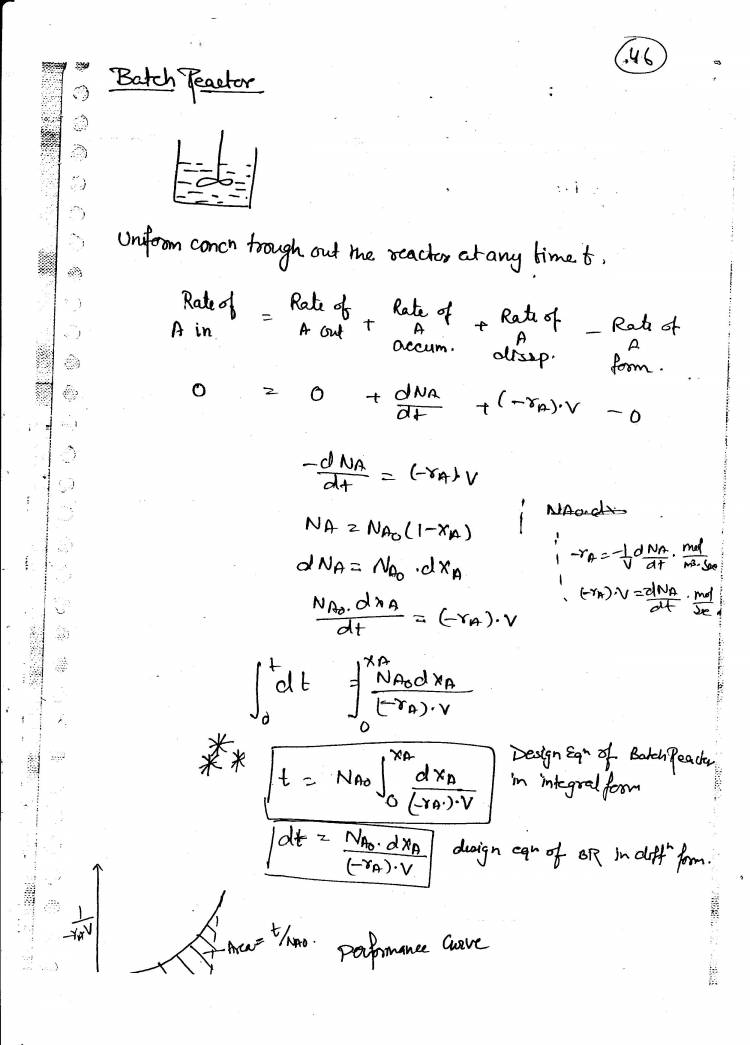 .46
Batch Reactor
Uniform concn trough out the reactor at any time t.
Rate of A in = Rate of A out + Rate of A accum. + Rate of A dissp. - Rate of A form.
0 = 0 + dNA/dt + (-rA).V - 0
-dNA/dt = (-rA).V
NA = NA0(1-XA)
dNA = NA0.dXA
NA0.dXA/dt = (-rA).V
-rA = -1/V dNA/dt . mol/m3.sec
(-rA).V = -dNA/dt . mol/sec
∫0^t dt = ∫0^XA NA0dXA/(-rA).V
t = NA0 ∫0^XA dXA/(-rA.).V
Design Eqn of Batch Reactor
in integral form
dt = NA0.dXA/(-rA).V design eqn of BR in diffn form.
1/-rAV
Area = t/NA0. Performance Curve